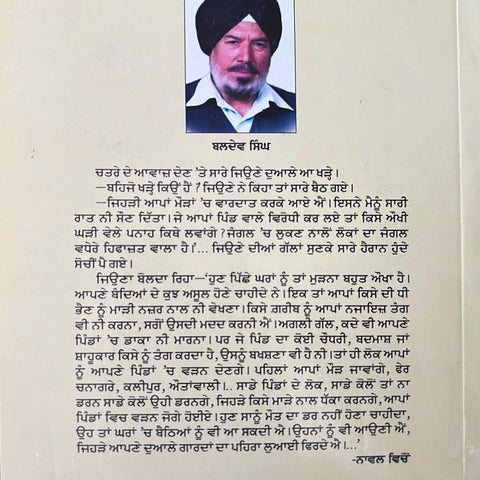 ਬਲਦੇਵ ਸਿੰਘ
ਚਤਰੇ ਦੇ ਆਵਾਜ਼ ਦੇਣ 'ਤੇ ਸਾਰੇ ਜਿਉਣੇ ਦੁਆਲੇ ਆ ਖੜ੍ਹੇ।
—ਬਹਿਜੋ ਖੜ੍ਹੇ ਕਿਉਂ ਹੈਂ ? ਜਿਉਣੇ ਨੇ ਕਿਹਾ ਤਾਂ ਸਾਰੇ ਬੈਠ ਗਏ।
—ਜਿਹੜੀ ਆਪਾਂ ਮੌੜਾਂ 'ਚ ਵਾਰਦਾਤ ਕਰਕੇ ਆਏ ਐਂ। ਇਸਨੇ ਮੈਨੂੰ ਸਾਰੀ
ਰਾਤ ਨੀ ਸੌਣ ਦਿੱਤਾ। ਜੇ ਆਪਾਂ ਪਿੰਡ ਵਾਲੇ ਵਿਰੋਧੀ ਕਰ ਲਏ ਤਾਂ ਕਿਸੇ ਔਖੀ
ਘੜੀ ਵੇਲੇ ਪਨਾਹ ਕਿਥੇ ਲਵਾਂਗੇ ? ਜੰਗਲ 'ਚ ਲੁਕਣ ਨਾਲੋਂ ਲੋਕਾਂ ਦਾ ਜੰਗਲ
ਵਧੇਰੇ ਹਿਫਾਜ਼ਤ ਵਾਲਾ ਹੈ।'... ਜਿਉਣੇ ਦੀਆਂ ਗੱਲਾਂ ਸੁਣਕੇ ਸਾਰੇ ਹੈਰਾਨ ਹੁੰਦੇ
ਸੋਚੀਂ ਪੈ ਗਏ।
ਜਿਉਣਾ ਬੋਲਦਾ ਰਿਹਾ—'ਹੁਣ ਪਿੱਛੇ ਘਰਾਂ ਨੂੰ ਤਾਂ ਮੁੜਨਾ ਬਹੁਤ ਔਖਾ ਹੈ।
ਆਪਣੇ ਬੰਦਿਆਂ ਦੇ ਕੁਝ ਅਸੂਲ ਹੋਣੇ ਚਾਹੀਦੇ ਨੇ। ਇਕ ਤਾਂ ਆਪਾਂ ਕਿਸੇ ਦੀ ਧੀ
ਭੈਣ ਨੂੰ ਮਾੜੀ ਨਜ਼ਰ ਨਾਲ ਨੀ ਵੇਖਣਾ। ਕਿਸੇ ਗ਼ਰੀਬ ਨੂੰ ਆਪਾਂ ਨਜਾਇਜ਼ ਤੰਗ
ਵੀ ਨੀ ਕਰਨਾ, ਸਗੋਂ ਉਸਦੀ ਮਦਦ ਕਰਨੀ ਐਂ। ਅਗਲੀ ਗੱਲ, ਕਦੇ ਵੀ ਆਪਣੇ
ਪਿੰਡਾਂ 'ਚ ਡਾਕਾ ਨੀ ਮਾਰਨਾ। ਪਰ ਜੇ ਪਿੰਡ ਦਾ ਕੋਈ ਚੌਧਰੀ, ਬਦਮਾਸ਼ ਜਾਂ
ਸ਼ਾਹੂਕਾਰ ਕਿਸੇ ਨੂੰ ਤੰਗ ਕਰਦਾ ਹੈ, ਉਸਨੂੰ ਬਖਸ਼ਣਾ ਵੀ ਹੈ ਨੀ। ਤਾਂ ਹੀ ਲੋਕ ਆਪਾਂ
ਨੂੰ ਆਪਣੇ ਪਿੰਡਾਂ 'ਚ ਵੜਨ ਦੇਣਗੇ। ਪਹਿਲਾਂ ਆਪਾਂ ਮੌੜ ਜਾਵਾਂਗੇ, ਫੇਰ
ਚਨਾਗਰੇ, ਕਲੀਪੁਰ, ਔਤਾਂਵਾਲੀ।.. ਸਾਡੇ ਪਿੰਡਾਂ ਦੇ ਲੋਕ, ਸਾਡੇ ਕੋਲੋਂ ਤਾਂ ਨਾ
ਡਰਨ ਸਾਡੇ ਕੋਲੋਂ ਉਹੀ ਡਰਨਗੇ, ਜਿਹੜੇ ਕਿਸੇ ਮਾੜੇ ਨਾਲ ਧੱਕਾ ਕਰਨਗੇ, ਆਪਾਂ
ਪਿੰਡਾਂ ਵਿਚ ਵੜਨ ਜੋਗੇ ਹੋਈਏ। ਹੁਣ ਸਾਨੂੰ ਮੌਤ ਦਾ ਡਰ ਨਹੀਂ ਹੋਣਾ ਚਾਹੀਦਾ,
ਉਹ ਤਾਂ ਘਰਾਂ 'ਚ ਬੈਠਿਆਂ ਨੂੰ ਵੀ ਆ ਸਕਦੀ ਐ। ਉਹਨਾਂ ਨੂੰ ਵੀ ਆਉਣੀ ਐਂ,
ਜਿਹੜੇ ਆਪਣੇ ਦੁਆਲੇ ਗਾਰਦਾਂ ਦਾ ਪਹਿਰਾ ਲੁਆਈ ਫਿਰਦੇ ਐ।...'
-ਨਾਵਲ ਵਿਚੋਂ